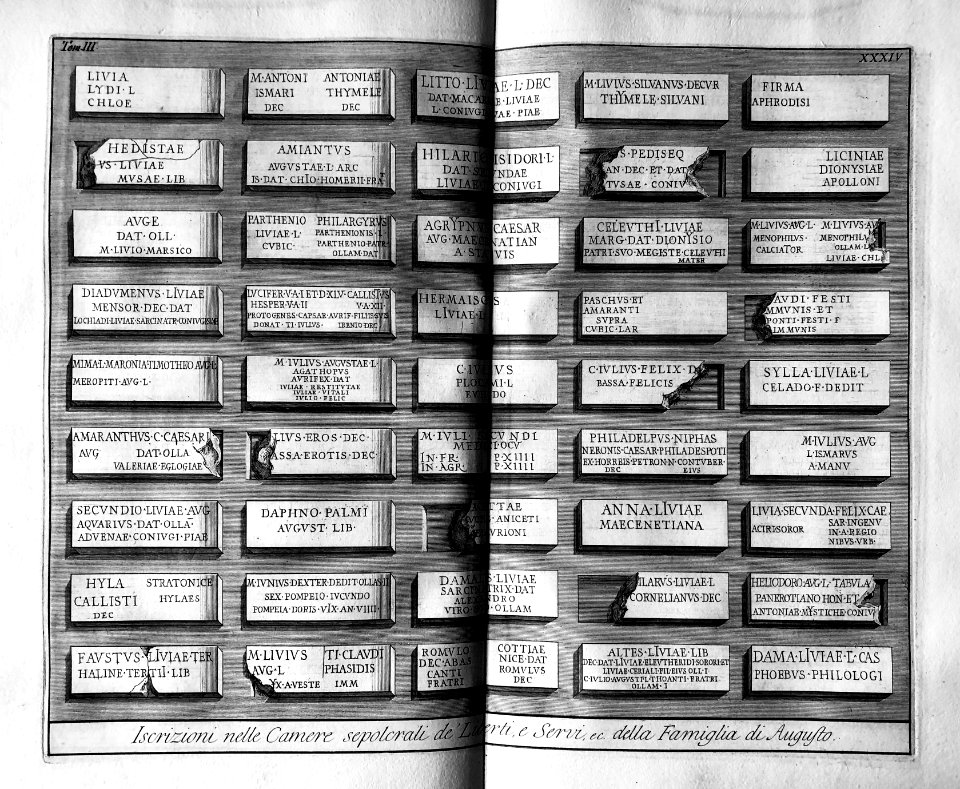 Tom. III.
XXXIV
LIVIA
LYDI · L
CHLOE
M · ANTONI ANTONIAE
ISMARI THYMELE
DEC DEC
LITTO · LIVIAE · L · DEC
DAT · MACAE · LIVIAE
L · CONIVGI VAE · PIAE
M · LIVIVS · SILVANVS · DECVR
THYMELE · SILVANI
FIRMA
APHRODISI
HEDISTAE
VS · LIVIAE
MVSAE · LIB
AMIANTVS
AVGVSTAE · L · ARC
IS · DAT · CHIO · HOMBRII · FRA
HILARI ISIDORI · L
DAT · NDAE
LIVIAE CONIVGI
S · PEDISEQ
AN · DEC · ET · DAT
TVSAE · CONIV
LICINIAE
DIONYSIAE
APOLLONI
AVGE
DAT · OLL
M · LIVIO · MARSICO
PARTHENIO PHILARGYRVS
LIVIAE · L · PARTHENIONIS · L
CVBIC · PARTHENIO · PATR
OLLAM · DAT
AGRYPNVS CAESAR
AVG · MAECENATIAN
A · STATVIS
CELEVTHI · LIVIAE
MARG · DAT · DIONISIO
PATRI · SVO · MEGISTE · CELEVTHI
MATER
M · LIVIVS · AVG · L · M · LIVIVS · AV
MENOPHILVS · MENOPHILV
CALCIATOR OLLAM · L
LIVIAE · CHL
DIADVMENVS · LIVIAE
MENSOR · DEC · DAT
LOCHIADI · LIVIAE · SARCINATR · CONIVGI
LVCIFER · V · A · I · ET · D · XLV · CALLISTVS
HESPER · V · A · II V · A · XII ·
PROTOGENES · CAESAR · AVRIF · FILIE
DONAT · TI · IVLIVS
HERMAISCS
LIVIAE · L
PASCHVS · ET
AMARANTI
SVPRA
CVBIC · LAR
AVDI · FESTI
MMVNIS · ET
PONTI · FESTI · F
IMMVNIS
MIMAL · MARONIA · TIMOTHEO · AVG · L
MEROPITI · AVG · L ·
M · IVLIVS · AVGVSTAE · L ·
AGATHOPVS
AVRIFEX · DAT
IVLIAE · RESTITVTAE
IVLIAE · VITALI
IVLIO · FELIC
C · IVLIVS
PLOCAMI · L
C · IVLIVS · FELIX · D
BASSA · FELICIS
SYLLA · LIVIAE · L
CELADO · F · DEDIT
AMARANTHVS · C · CAESAR
AVG DAT · OLLA
VALERIAE · EGLOGIAE
LIVS · EROS · DEC ·
ASSA · EROTIS · DEC ·
M · IVLI · SECVNDI
MEDICI · OCV
IN · FR · P · XIIII
IN · AGR · P · XIIII
PHILADELPVS · NIPHAS
NERONIS · CAESAR · PHILADESPOTI
EX · HORREIS · PETRON · N · CONTVBER
DEC EIVS
M · IVLIVS · AVG
L · ISMARVS
A · MANV
SECVNDIO · LIVIAE · AVG
AQVARIVS · DAT · OLLA
ADVENAE · CONIVGI · PIAE
DAPHNO · PALMI
AVGVST · LIB ·
TTAE
ANICETI
VRIONI
ANNA · LIVIAE
MAECENETIANA
LIVIA · SECVNDA · FELIX · CAE
ACIRI · SOROR SAR · INGENV
IN · A · REGIO
NIBVS · VRB ·
HYLA STRATONICE
CALLISTI HYLAES
DEC
M · IVNIVS · DEXTER · DEDIT · OLLAS · II
SEX · POMPEIO · IVCVNDO
POMPEIA · DORIS · VIX · AN · VIIII ·
DAMALIS · LIVIAE
SARCINATRIX · DAT
ALEXANDRO
VIRO OLLAM
ILARVS · LIVIAE · L
CORNELIANVS · DEC
HELIODORO · AVG · L · TABVLA
PANEROTIANO · HON · ET
ANTONIAE · MYSTICHE · CONIV
FAVSTVS · LIVIAE · TER
HALINE · TERTII · LIB
M · LIVIVS TI · CLAVDI
AVG · L PHASIDIS
YX · AVESTE IMM
ROMVLO COTTIAE
DEC · ABAS NICE · DAT
CANTI ROMVLVS
FRATRI DEC
ALTES · LIVIAE · LIB
DEC · DAT · LIVIAE · ELEVTHERIDI · SORORI · ET
LIVIAE · CERIALI · FIL · EIVS · OLL · I
C · IVLIO · AVGVST · P · L · THOANTI · FRATRI
OLLAM · I
DAMA · LIVIAE · L · CAS
PHOEBVS · PHILOLOGI
Iscrizioni nelle Camere sepolcrali de' Liberti, e Servi, ec. della Famiglia di Augusto.